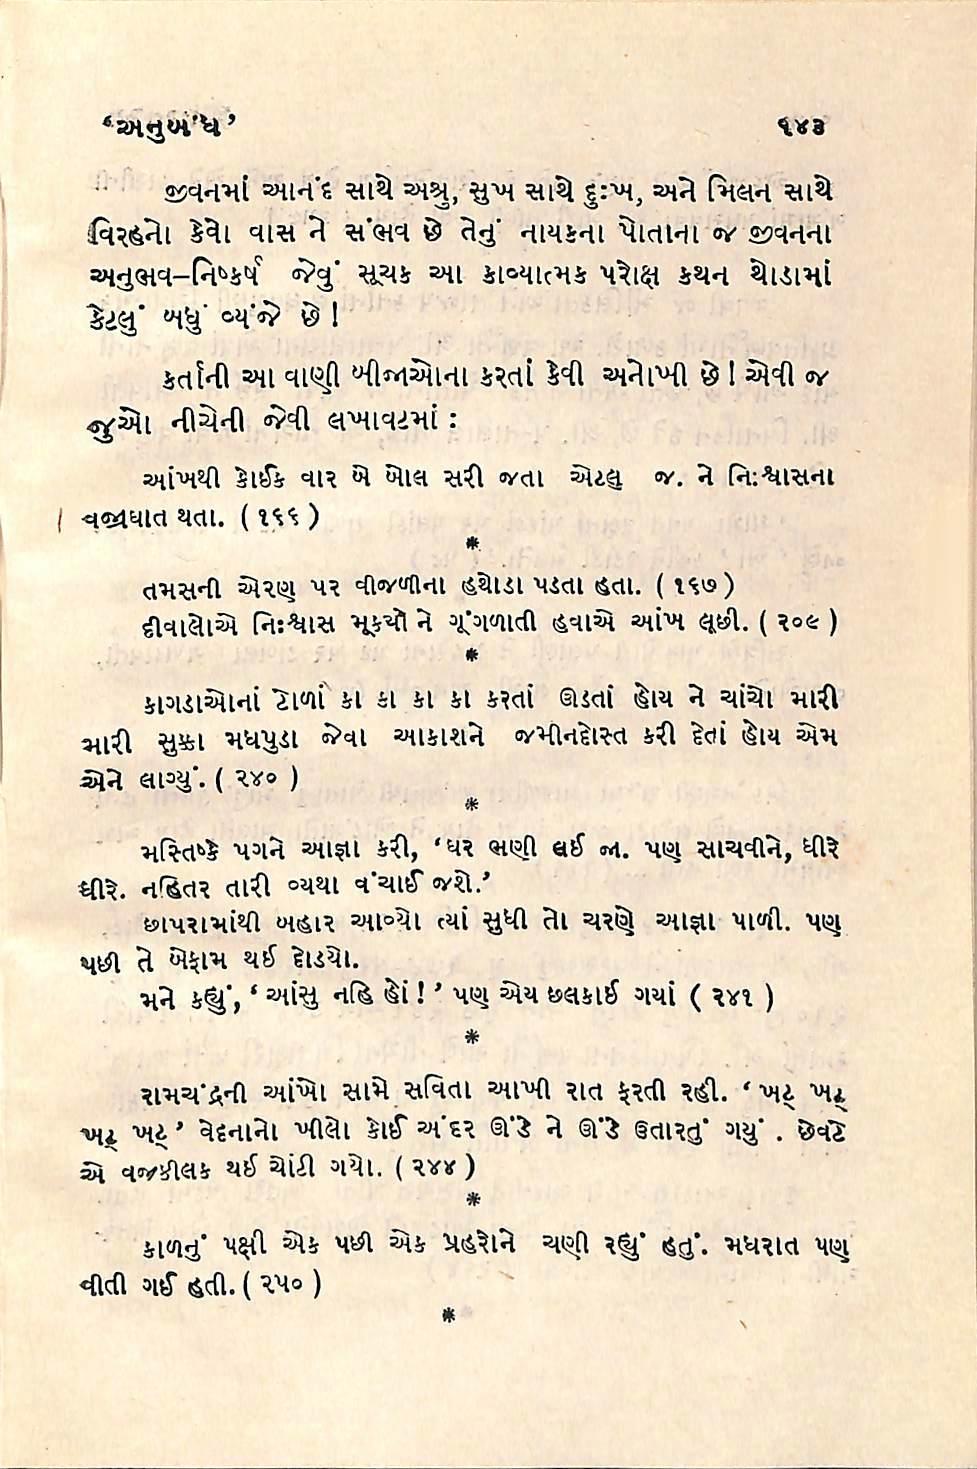 ‘અનુબંધ’ ૧૪૩
જીવનમાં આનંદ સાથે અશ્રુ, સુખ સાથે દુઃખ, અને મિલન સાથે
વિરહનો કેવો વાસ ને સંભવ છે તેનું નાયકના પોતાના જ જીવનના
અનુભવ–નિષ્કર્ષ જેવું સૂચક આ કાવ્યાત્મક પરોક્ષ કથન થોડામાં
કેટલું બધું વ્યંજે છે !
કર્તાની આ વાણી બીજાઓના કરતાં કેવી અનોખી છે ! એવી જ
જુઓ નીચેની જેવી લખાવટમાં :
આંખથી કોઈક વાર બે બોલ સરી જતા એટલુ જ. ને નિઃશ્વાસના
વજ્રાઘાત થતા. ( ૧૬૬ )
*
તમસની એરણ પર વીજળીના હથોડા પડતા હતા. ( ૧૬૭ )
દીવાલોએ નિઃશ્વાસ મૂક્યો ને ગૂંગળાતી હવાએ આંખ લૂછી. ( ૨૦૯ )
*
કાગડાઓનાં ટોળાં કા કા કા કા કરતાં ઊડતાં હોય ને ચાંચો મારી
મારી સુક્કા મધપુડા જેવા આકાશને જમીનદોસ્ત કરી દેતાં હોય એમ
એને લાગ્યું. ( ૨૪૦ )
*
મસ્તિષ્કે પગને આજ્ઞા કરી, ‘ઘર ભણી લઈ જા. પણ સાચવીને, ધીરે
ધીરે. નહિતર તારી વ્યથા વંચાઈ જશે.’
છાપરામાંથી બહાર આવ્યો ત્યાં સુધી તો ચરણે આજ્ઞા પાળી. પણ
પછી તે બેફામ થઈ દોડયો.
મને કહ્યું, ‘ આંસુ નહિ હોં ! ’ પણ એય છલકાઈ ગયાં ( ૨૪૧ )
*
રામચંદ્રની આંખો સામે સવિતા આખી રાત ફરતી રહી. ‘ ખટ્ ખટ્
ખટ્ ખટ્ ’ વેદનાનો ખીલો કોઈ અંદર ઊંડે ને ઊંડે ઉતારતું ગયું . છેવટે
એ વજ્રકીલક થઈ ચોંટી ગયો. ( ૨૪૪ )
*
કાળનું પક્ષી એક પછી એક પ્રહરોને ચણી રહ્યું હતું. મધરાત પણ
વીતી ગઈ હતી. ( ૨૫૦ )
*